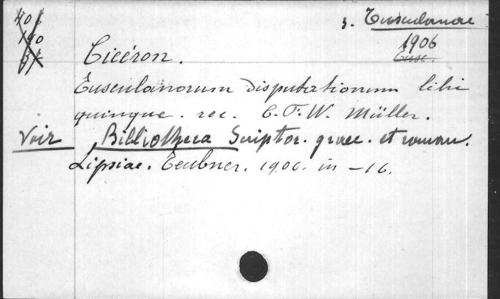 3. Tusculanae
1906
Tusc.
406
190
Cicéron.
Tusculanorum disputationum libri
quinque. rec. C. F. W. Müller.
Voir Bibliotheca Scriptor. graec. et roman.
Lipsiae. Teubner. 1906. in-16.